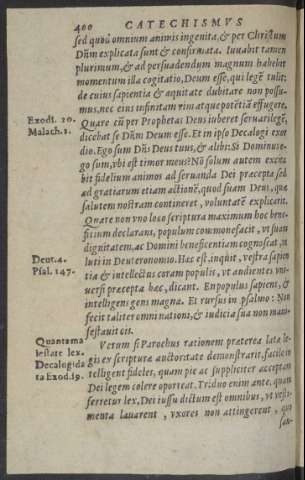 400 CATECHISMVS
sed quod omnium animis ingenita, & per Christum
Dñm explicata sunt & confirmata. Iuuabit tamen
plurimum, & ad persuadendum magnum habebit
momentum illa cogitatio, Deum esse, qui legē tulit:
de cuius sapientia & æquitate dubitare non possu-
mus, nec eius infinitam vim atque potētiā effugere.
Exodi. 20.
Malach. 1.
Quare cū per Prophetas Deus iuberet seruari legē,
dicebat se Dñm Deum esse. Et in ipso Decalogi exor
dio. Ego sum Dñs Deus tuus, & alibi: Si Dominus e-
go sum, vbi est timor meus? Nō solum autem excita
bit fidelium animos ad seruanda Dei præcepta sed
ad gratiarum etiam actionē, quod suam Deus, qua
salutem nostram contineret, voluntatē explicarit.
Quare non vno loco scriptura maximum hoc bene-
ficium declarans, populum commonefacit, vt suam
dignitatem, ac Domini beneficentiam cognoscat, ve
Deut. 4.
Psal. 147.
luti in Deuteronomio. Hæc est, inquit, vestra sapien
tia & intellectus coram populis, vt audientes vni-
uersi præcepta hæc, dicant. En populus sapiens, &
intelligens gens magna. Et rursus in psalmo: Non
fecit taliter omni nationi, & iudicia sua non mani-
festauit eis.
Quanta ma
iestate lex.
Decalogi da
ta Exod. 19.
Verum si Parochus rationem præterea latæ le-
gis ex scripturæ auctoritate demonstrarit, facile in
telligent fideles, quam pie ac suppliciter acceptam à
Dei legem colere oporteat. Triduo enim ante, quam
ferretur lex, Dei iussu dictum est omnibus, vt vesti-
menta lauarent, vxores non attingerent, quo
san-